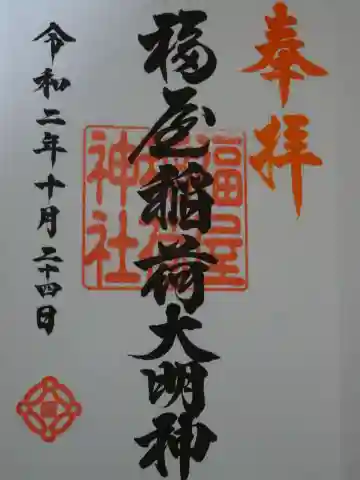 奉拝
福屋稲荷大明神
福屋稲荷神社
令和二年十月二十四日